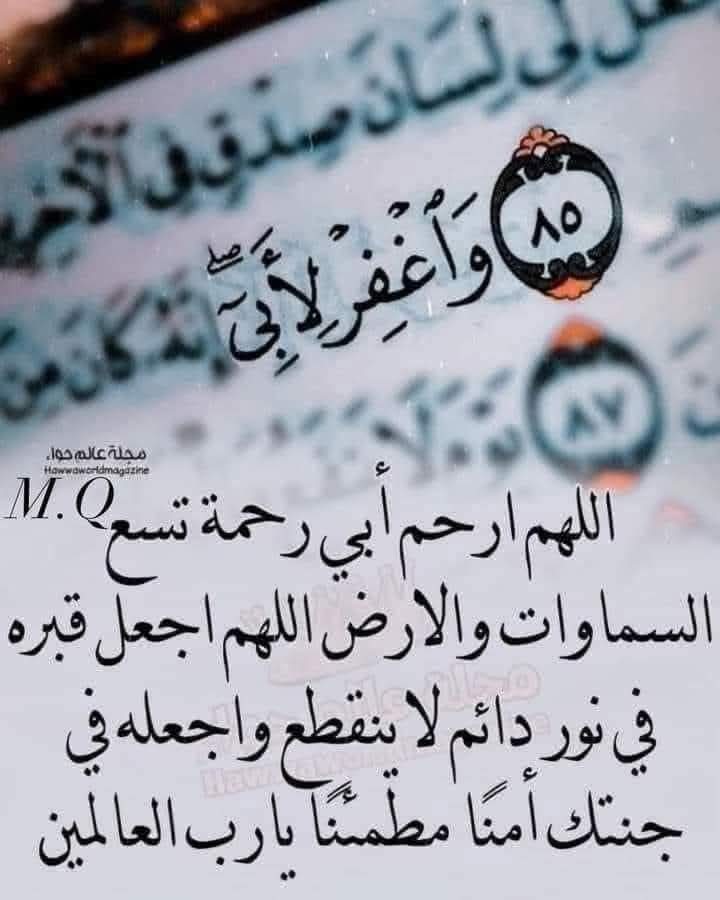 لِّى لِسَانَ صِدْقٍ فِى ٱلْأَخِرِ
٨٥ وَٱغْفِرْ لِأَبِىٓ ۖ إِنَّهُۥ كَانَ مِنَ
٨٧
مجلة عالم حواء
Hawwaworldmagazine
M.Q
اللهم ارحم أبي رحمة تسع
السماوات والارض اللهم اجعل قبره
في نور دائم لا ينقطع واجعله في
جنتك أمنًا مطمئنًا يارب العالمين